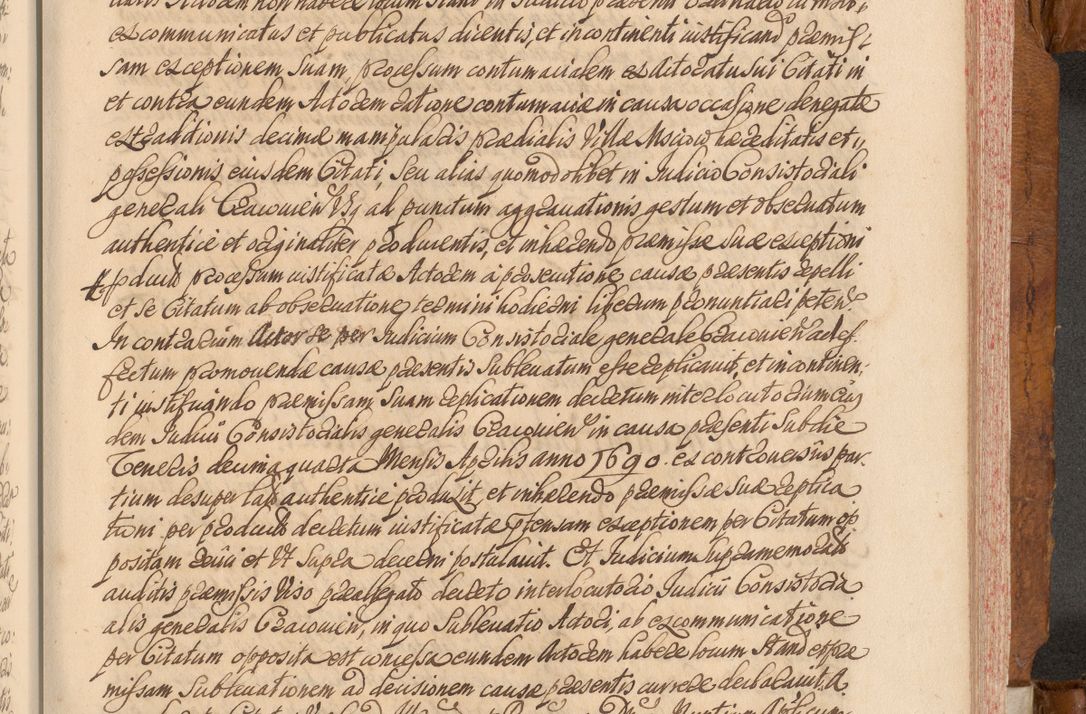 excommunicatus et publicatus dicentis, et incontinenti iustificando præmis-
sam exceptionem suam, processum contumacialem ex Actoratu sui Citati in
et contra eundem Actorem ratione contumaciæ in causa occasione denegatæ
extraditionis decimæ manipularis prædialis Villæ hæreditatis et
possessionis eiusdem Citati, seu alias quomodolibet in Iudicio Consistoriali
generali Cracovien usq ad punctum aggravationis gestum et observatum
authentice et originaliter producentis, et inhærendo præmissæ suæ exceptioni
producto processum iustificatæ Actorem a prosecutione causæ præsentis repelli
et se Citatum ab observatione termini hodierni liberum pronuntiari peten
In contrarium Actor se per Iudicium Consistoriale generale Cracovien ad ef-
fectum promovendæ causæ præsentis sublevatum esse replicavit, et incontinen-
ti iustificando præmissam suam replicationem decretum interlocutorium eius
dem Iudicii Consistorialis generalis Cracovien in causa præsenti sub die
Veneris decima quarta Mensis Aprilis anno 1690. ex controversiis par-
tium desuper latum authentice produxit, et inhærendo præmissæ suæ replica
tioni per productum decretum iustificatæ prætensam exceptionem per Citatum op
positam reiici et ut supra decerni postulavit. Et Iudicium supramemoratum
auditis præmissis viso præallegato decreto interlocutorio Iudicii Consistoria
alis generalis Cracovien, in quo sublevatio Actori, ab excommunicatione
per Citatum opposita est concessa eundem Actorem habere locum standi et præ
missam sublevationem ad decisionem causæ præsentis currere declaravit. A